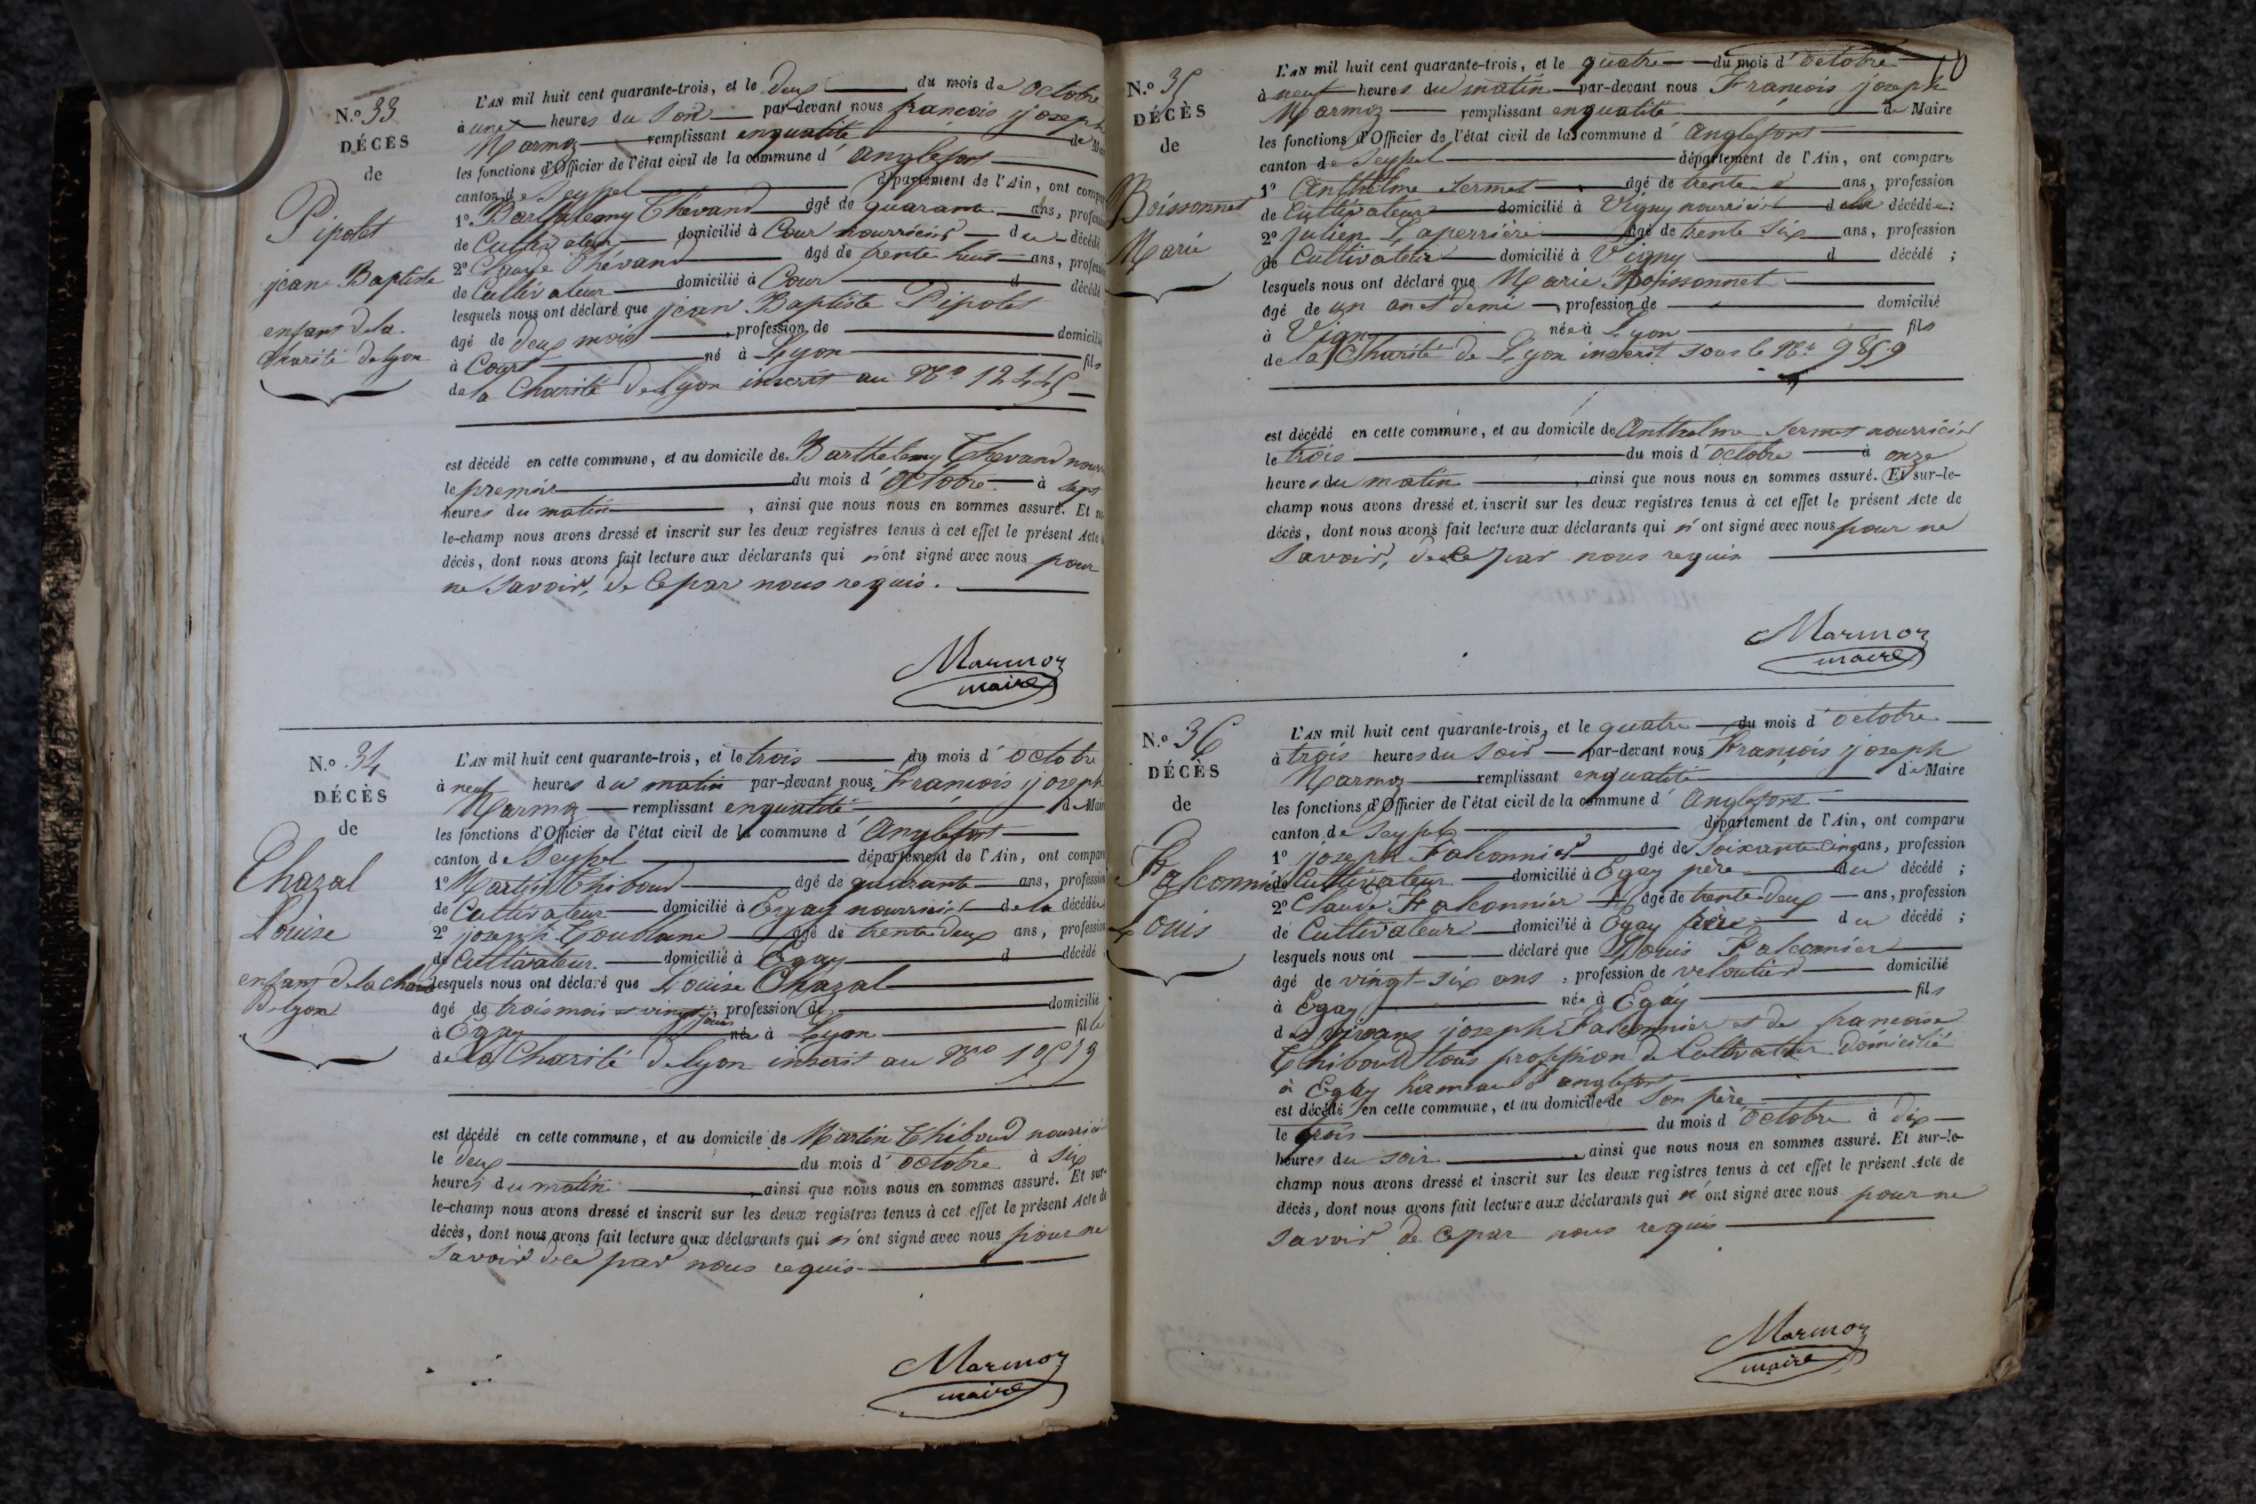 N.º 33
DÉCÈS
de
Pipolet
jean Baptiste
enfant de la
Charité de lyon
L'AN mil huit cent quarante-trois, et le deux du mois de octobre
à une heures du Soir par-devant nous francois joseph
Marmoz remplissant en qualité de Maire
les fonctions d'Officier de l'état civil de la commune d' anglefort
canton de Seyssel département de l'Ain, ont comparu
1º Barthelemy Thevand âgé de quarante ans, profession
de Cultivateur domicilié à Cour nourricier du décédé
2º Claude Thévand âgé de trente huit ans, profession
de Cultivateur domicilié à Cour d décédé
lesquels nous ont déclaré que jean Baptiste Pipolet
âgé de deux mois profession de domicilié
à Court né à Lyon fils
de la Charité de lyon inscrit au Nº 12445
est décédé en cette commune, et au domicile de Barthelemy Thevand nourr
le premier du mois d' Octobre à sept
heures du matin, ainsi que nous nous en sommes assuré. Et su
le-champ nous avons dressé et inscrit sur les deux registres tenus à cet effet le présent Acte
décès, dont nous avons fait lecture aux déclarants qui n'ont signé avec nous pour
ne Savoir, de Ce par nous requis.
Marmoz
maire
N.º 34
DÉCÈS
de
Chazal
Louise
enfant de la chari
De lyon
L'AN mil huit cent quarante-trois, et le trois du mois d' octobre
à neuf heures du matin par-devant nous, François joseph
Marmoz remplissant en qualité de Maire
les fonctions d'Officier de l'état civil de la commune d' Anglefort
canton de Seyssel département de l'Ain, ont comparu
1º Martin Thiboud âgé de quarante ans, profession
de Cultivateur domicilié à Egay nourricier de la décédée
2º joseph Goublane âgé de trente deux ans, profession
de Cultivateur domicilié à Egay d décédé
lesquels nous ont déclaré que Louise Chazal
âgé de trois mois et vingt jours, profession de domicilié
à Egay née à Lyon fille
de la Charité de lyon inscrit au Nº
est décédé en cette commune, et au domicile de Martin Thiboud nourricier
le deux du mois d' octobre à six
heures du matin ainsi que nous nous en sommes assuré. Et sur-
le-champ nous avons dressé et inscrit sur les deux registres tenus à cet effet le présent Acte de
décès, dont nous avons fait lecture aux déclarants qui n'ont signé avec nous pour ne
Savoir de Ce par nous requis
Marmoz
maire
10
N.º 35
DÉCÈS
de
Boissonnet
Marie
L'AN mil huit cent quarante-trois, et le quatre du mois d' octobre
à neuf heures du matin par-devant nous François joseph
Marmoz remplissant en qualité de Maire
les fonctions d'Officier de l'état civil de la commune d' Anglefort
canton de Seyssel département de l'Ain, ont comparu
1º Anthelme Sermet âgé de trente ans, profession
de Cultivateur domicilié à Vigny nourricier de la décédée;
2º Julien Laperrière âgé de trente six ans, profession
de Cultivateur domicilié à Vigny d décédé;
lesquels nous ont déclaré que Marie Boissonnet
âgé de un an et demi, profession de domicilié
à Vigny née à Lyon fils
de la Charité de Lyon inscrit sous le Nº 9859
est décédé en cette commune, et au domicile de Anthelme Sermet nourricier
le trois du mois d' octobre à onze
heures du matin, ainsi que nous nous en sommes assuré. Et sur-le-
champ nous avons dressé et inscrit sur les deux registres tenus à cet effet le présent Acte de
décès, dont nous avons fait lecture aux déclarants qui n'ont signé avec nous pour ne
Savoir, de Ce par nous requis
Marmoz
maire
N.º 36
DÉCÈS
de
Falconnier
Louis
L'AN mil huit cent quarante-trois, et le quatre du mois d' octobre
à trois heures du Soir par-devant nous François joseph
Marmoz remplissant en qualité de Maire
les fonctions d'Officier de l'état civil de la commune d' Anglefort
canton de Seyssel département de l'Ain, ont comparu
1º joseph Falconnier âgé de Soixante cinq ans, profession
de Cultivateur domicilié à Egay père du décédé;
2º Claude Falconnier âgé de trente-deux ans, profession
de Cultivateur domicilié à Egay frère du décédé;
lesquels nous ont déclaré que Louis Falconnier
âgé de vingt-six ans, profession de veloutier domicilié
à Egay née à Egay fils
des vivans joseph Falconnier et de francoise
Thiboud tous profession de Cultivateur domicilié
à Egay hameau d' anglefort
est décédé en cette commune, et au domicile de Son père
le trois du mois d' Octobre à dix
heures du soir, ainsi que nous nous en sommes assuré. Et sur-le-
champ nous avons dressé et inscrit sur les deux registres tenus à cet effet le présent Acte de
décès, dont nous avons fait lecture aux déclarants qui n'ont signé avec nous pour ne
Savoir de Ce par nous requis
Marmoz
maire